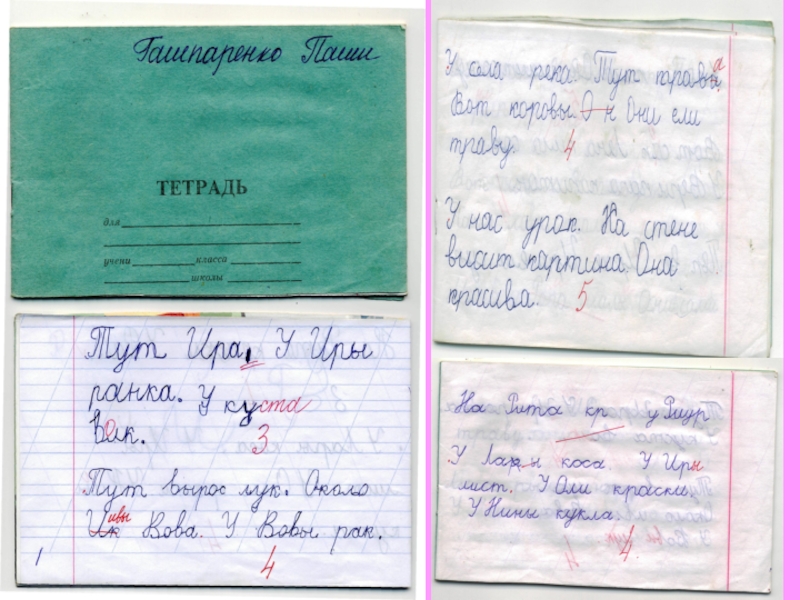 Гашпаренко Паши
ТЕТРАДЬ
для
учени класса
школы
Тут Ира. У Иры
ранка. У куста
Вак.
3
Тут вырос лук. Около
ивы Вова. У Вовы рак.
4
У села река. Тут трава
Вот коровы. Он Они ели
траву. 4
У нас урок. На стене
висит картина. Она
красива. 5
На Рита кр у
У Лары коса. У Иры
лист. У Оли краски
У Нины кукла.
4